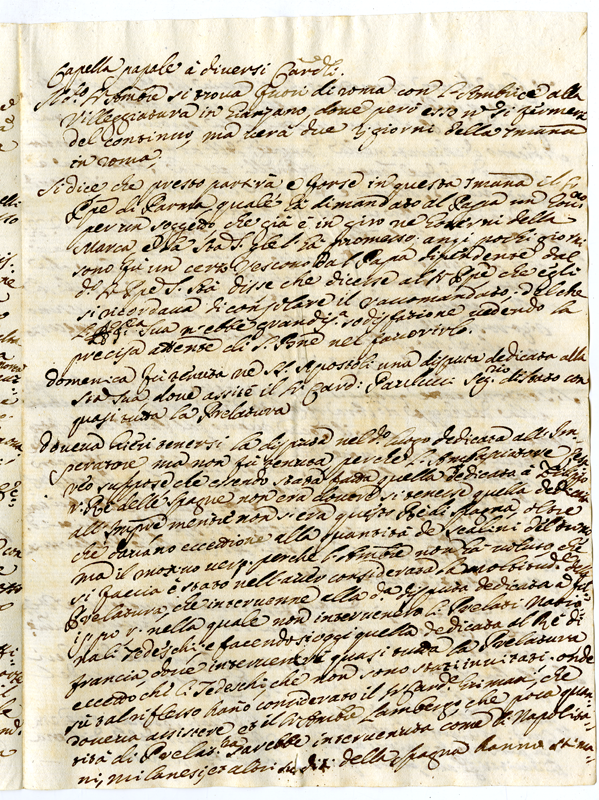 Capella papale à diversi Card.li
Il S.r Amb.re si trova fuori di roma con l'Ambrice alla
Villeggiatura in Genzano, dove però esso n. si fermerà
del continuo, ma verà due giorni della 7mana
in roma.
Si dice che presto partirà e forse in questa 7mana il
Pñpe di Parma quale hà dimandato al Papa un
per un sogetto che già è in giro ne Governi della
Marca e Hà promesso anzi pochi giorni
sono fù un certo Vescono dal Papa dipendente del
d.o Pñpe S. Stà disse che dicesse al Sr Pñpe che egli
si ricordava di consolare il raccomandato, delche
Sua n'ebbe grandis.a sodisfazione vedendo la
precisa attent.e di S. B.ne nel favorirlo.
domenica fù tenuta ne SS. Apostoli una disputa dedicata alla
Stà Sua dove assistè il Sr Card: Paulucci Seg.rio di stato con
quasi tutta la Prelatura
doveva hieri tenersi la disputa nel d.o luogo dedicata all'Im-
peratore ma non fù tenuta perche l'Ambasciatore
suppose che essendo stata fatta quella dedicata à
Rè delle spagne non era dovere si tenesse quella
all' mentre non s'era Rè di spagna, oltre
che davano eccettione alla quantità de scalini del trono
ma il motivo perche l'Amb.re non hà voluto che
si faccia è stato nell'aver considerata la moltitud.e
Prelatura, che intervenne alla d.a disputa dedicata à Fi-
ippo V. nella quale non intervennero li Prelati Natio-
nali Tedeschi e facendosi oggi quella dedicata al Rè di
francia dove intervenne quasi tutta la Prelatura
eccetto che li Tedeschi che non sono stati invitati. onde
sù tal riflesso hano considerato il Sr Card. Grimani che
doveria assistere et il Sr Amb.re Lambergo che poca quan-
tità di Prelat.ra sarebbe intervenuta come Napolita-
ni, milanesi, et altri della spagna hanno stima-